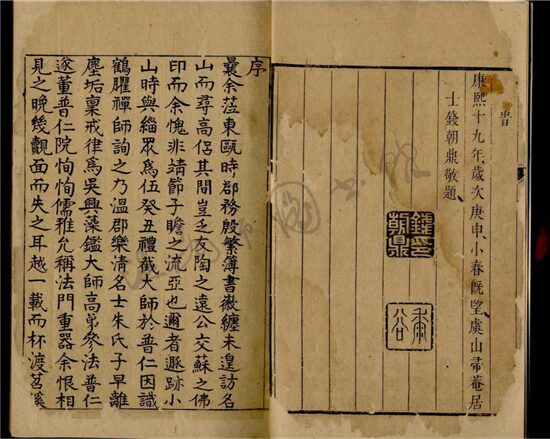 旹
康熙十九年歲次庚申小春既望虞山帚菴居
士錢朝鼎敬題
錢印
朝鼎
黍谷
序
曩余蒞東甌時郡務殷繁簿書徽纏未遑訪名
山而尋高侶其間豈乏友陶之遠公交蘇之佛
印而余愧非靖節子瞻之流亞也邇者遯跡小
山時與緇眾為伍癸丑禮截大師於普仁因識
鶴臞禪師詢之乃溫郡樂清名士朱氏子早離
塵垢稟戒律為吳興藻鑑大師高弟參法普仁
遂董普仁院恂恂儒雅允稱法門重器余恨相
見之晚幾覿面而失之耳越一載而杯渡苕溪
圖書館